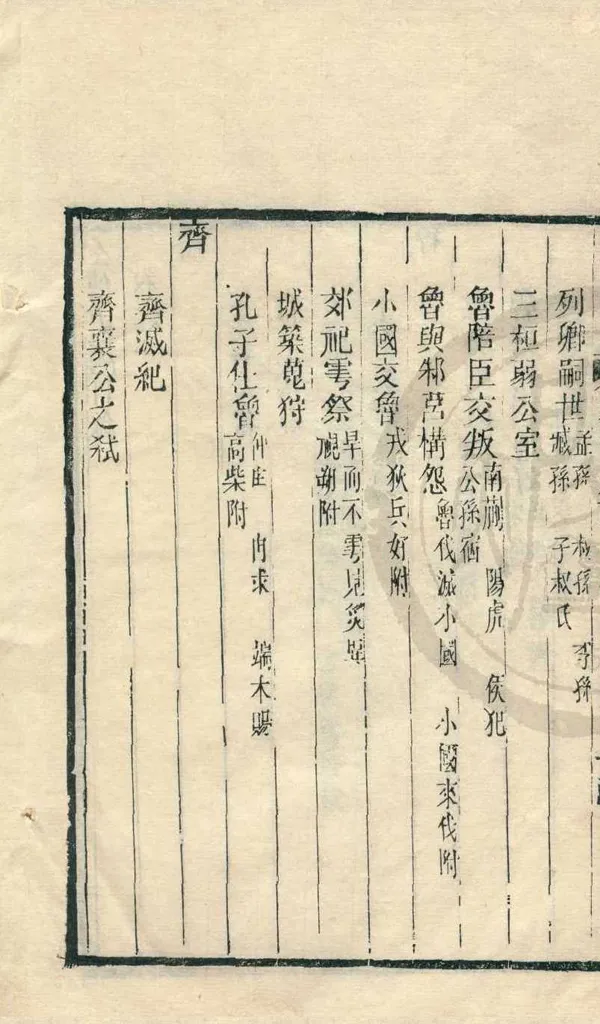 列卿嗣世 孟孫 叔孫 季孫 臧孫 子叔氏
三桓弱公室
魯陪臣交叛 南蒯 陽虎 侯犯 公孫宿
魯與邾莒構怨 魯伐滅小國 小國來伐附
小國交魯 戎狄兵好附
郊祀雩祭 旱而不雩見災異 視朔附
城築蒐狩
孔子仕魯 仲由 冉求 端木賜 高柴附
齊
齊滅紀
齊襄公之弒